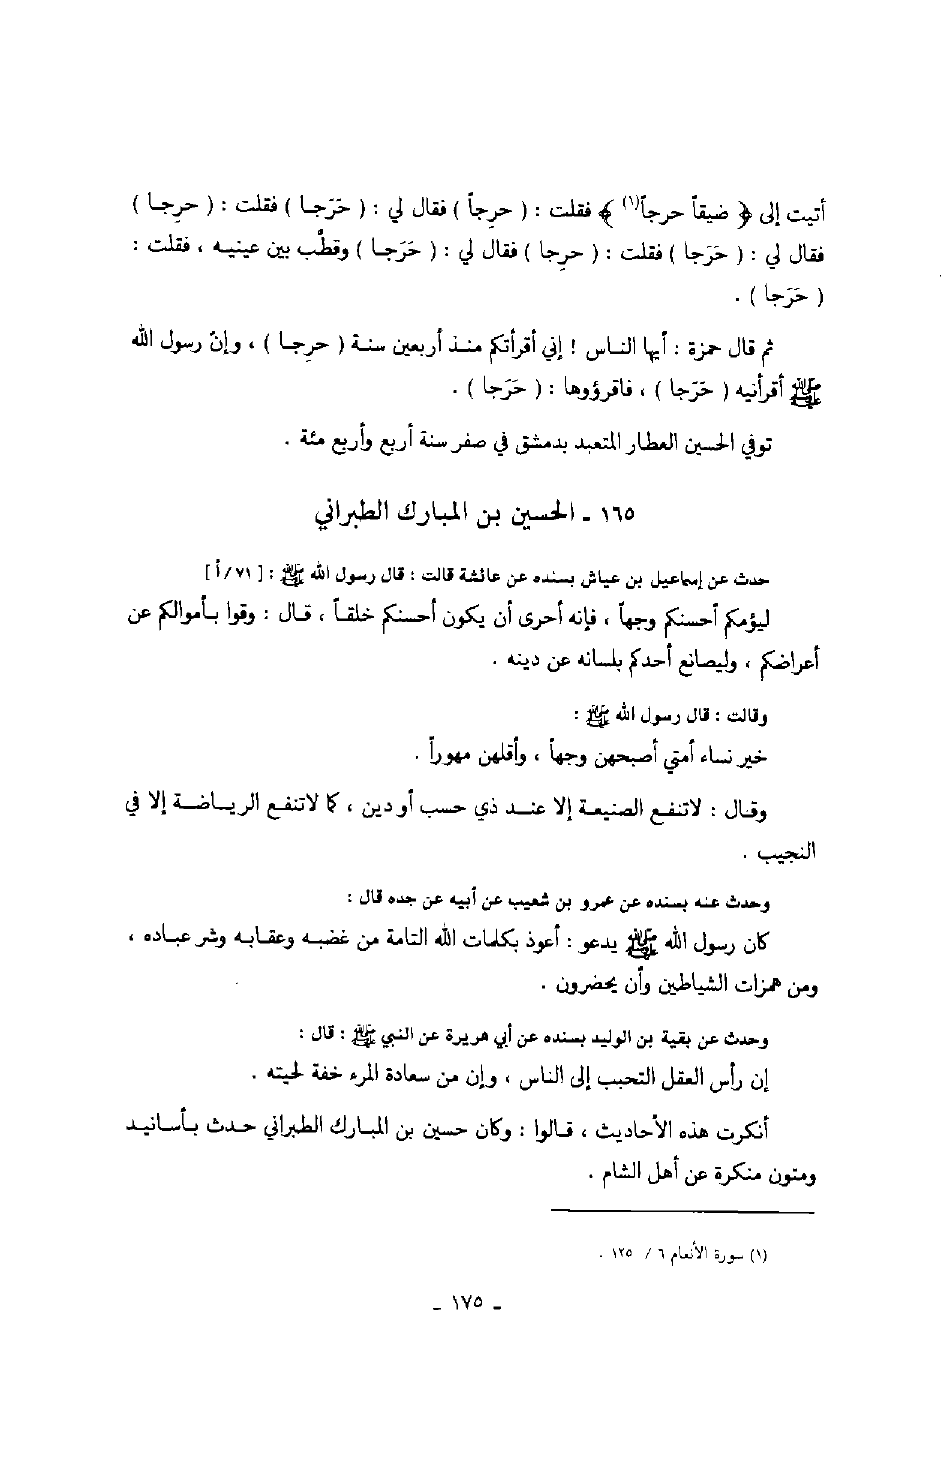 أتيت إلى ﴿ ضيقاً حرجاً(١) ﴾ فقلت : ( حرِجاً ) فقال لي : ( حَرَجـا ) فقلت : ( حرِجـا )
فقال لي : ( حَرَجا ) فقلت : ( حرِجا ) فقال لي : ( حَرَجـا ) وقطَّب بين عينيـه ، فقلت :
( حَرَجا ) .
ثم قال حمزة : أيها النـاس ! إني أقرأتكم منـذ أربعين سنـة ( حرِجـا ) ، وإنّ رسول الله
ﷺ أقرأنيه ( حَرَجا ) ، فاقرؤوها : ( حَرَجا ) .
توفي الحسين العطار المتعبد بدمشق في صفر سنة أربع وأربع مئة .
١٦٥ ـ الحسين بن المبارك الطبراني
حدث عن إسماعيل بن عياش بسنده عن عائشة قالت : قال رسول الله ﷺ : [ ٧١/أ ]
ليؤمكم أحسنكم وجهاً ، فإنه أحرى أن يكون أحسنكم خلقـاً ، قـال : وقوا بـأموالكم عن
أعراضكم ، وليصانع أحدكم بلسانه عن دينه .
وقالت : قال رسول الله ﷺ :
خير نساء أمتي أصبحهن وجهاً ، وأقلهن مهوراً .
وقـال : لاتنفـع الصنيعـة إلا عنـد ذي حسب أو دين ، كما لاتنفـع الريـاضـة إلا في
النجيب .
وحدث عنه بسنده عن عمرو بن شعيب عن أبيه عن جده قال :
كان رسول الله ﷺ يدعو : أعوذ بكلمات الله التامة من غضبـه وعقابـه وشر عبـاده ،
ومن همزات الشياطين وأن يحضرون .
وحدث عن بقية بن الوليد بسنده عن أبي هريرة عن النبي ﷺ : قال :
إن رأس العقل التحبب إلى الناس ، وإن من سعادة المرء خفة لحيته .
أنكرت هذه الأحاديث ، قـالوا : وكان حسين بن المبارك الطبراني حـدث بـأسـانيـد
ومتون منكرة عن أهل الشام .
(١) سورة الأنعام ٦ / ١٢٥ .
ـ ١٧٥ ـ